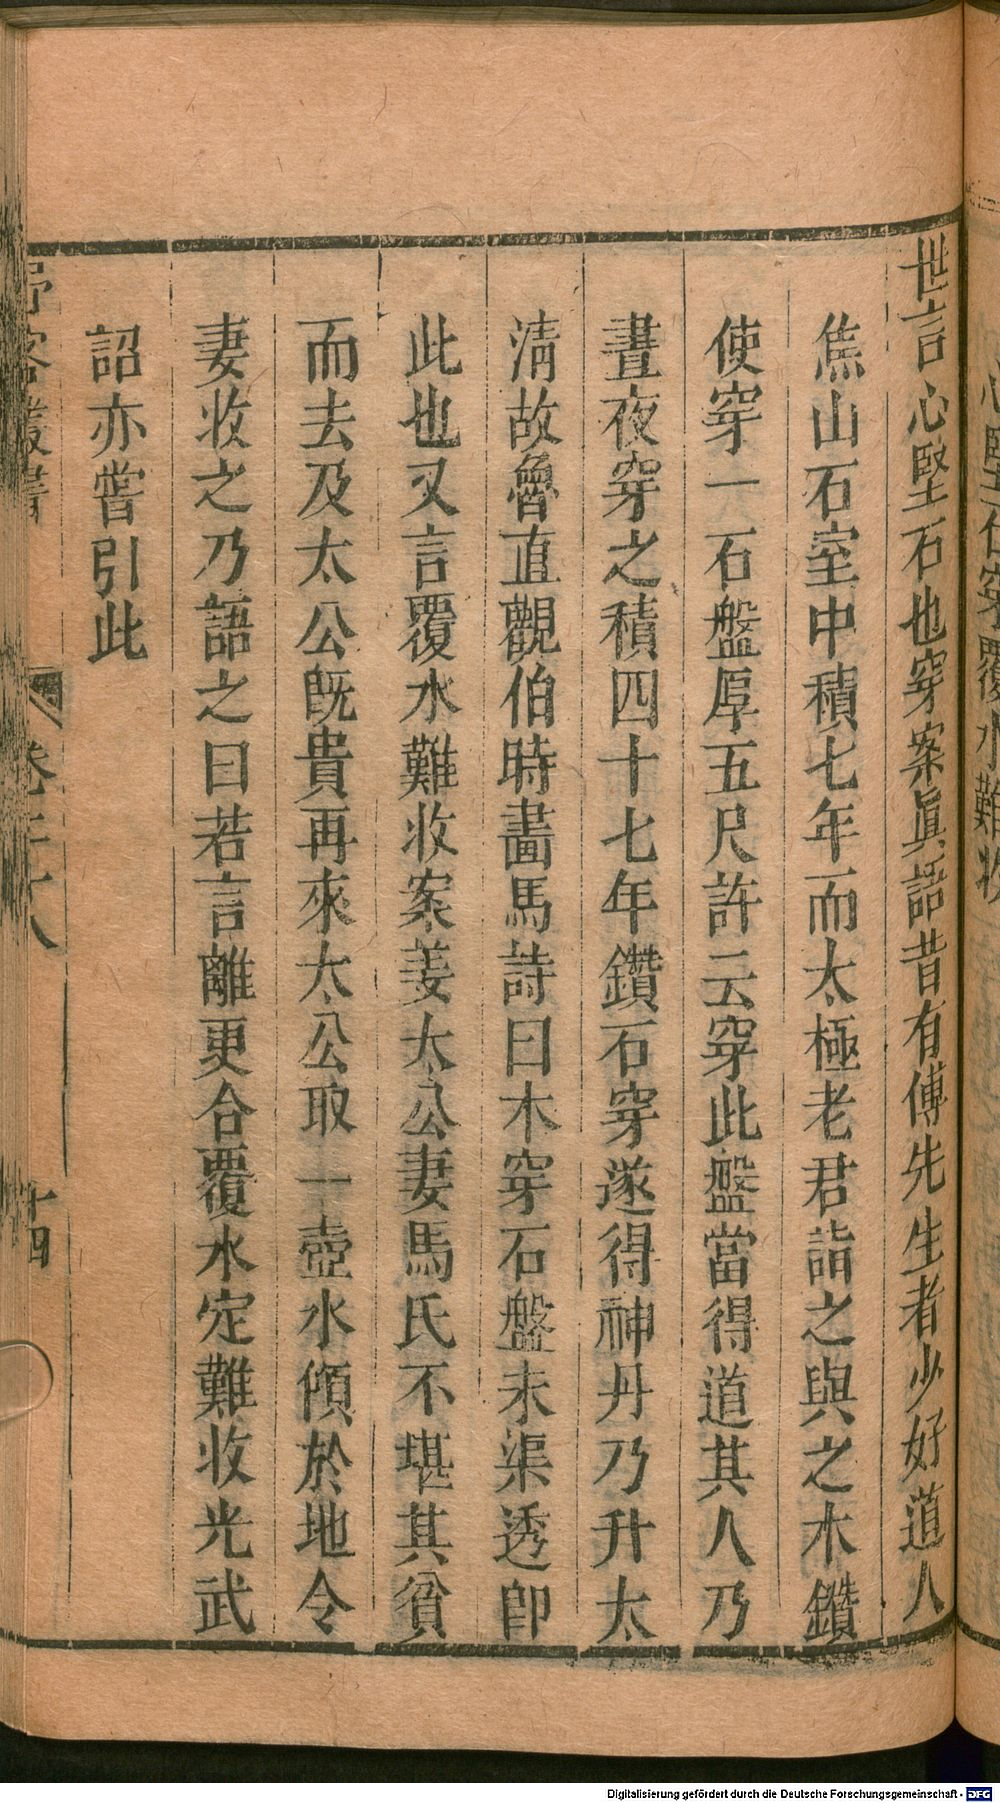 心堅石穿覆水難收
世言心堅石也穿案眞誥昔有傅先生者少好道人
焦山石室中積七年而太極老君詣之與之木鑽
使穿一石盤厚五尺許云穿此盤當得道其人乃
晝夜穿之積四十七年鑽石穿遂得神丹乃升太
淸故魯直觀伯時畵馬詩曰木穿石盤未渠透卽
此也又言覆水難收案姜太公妻馬氏不堪其貧
而去及太公旣貴再來太公取一壺水傾於地令
妻收之乃語之曰若言離更合覆水定難收光武
詔亦嘗引此
野客叢書 卷二十八 十四
Digitalisierung gefördert durch die Deutsche Forschungsgemeinschaft - DFG